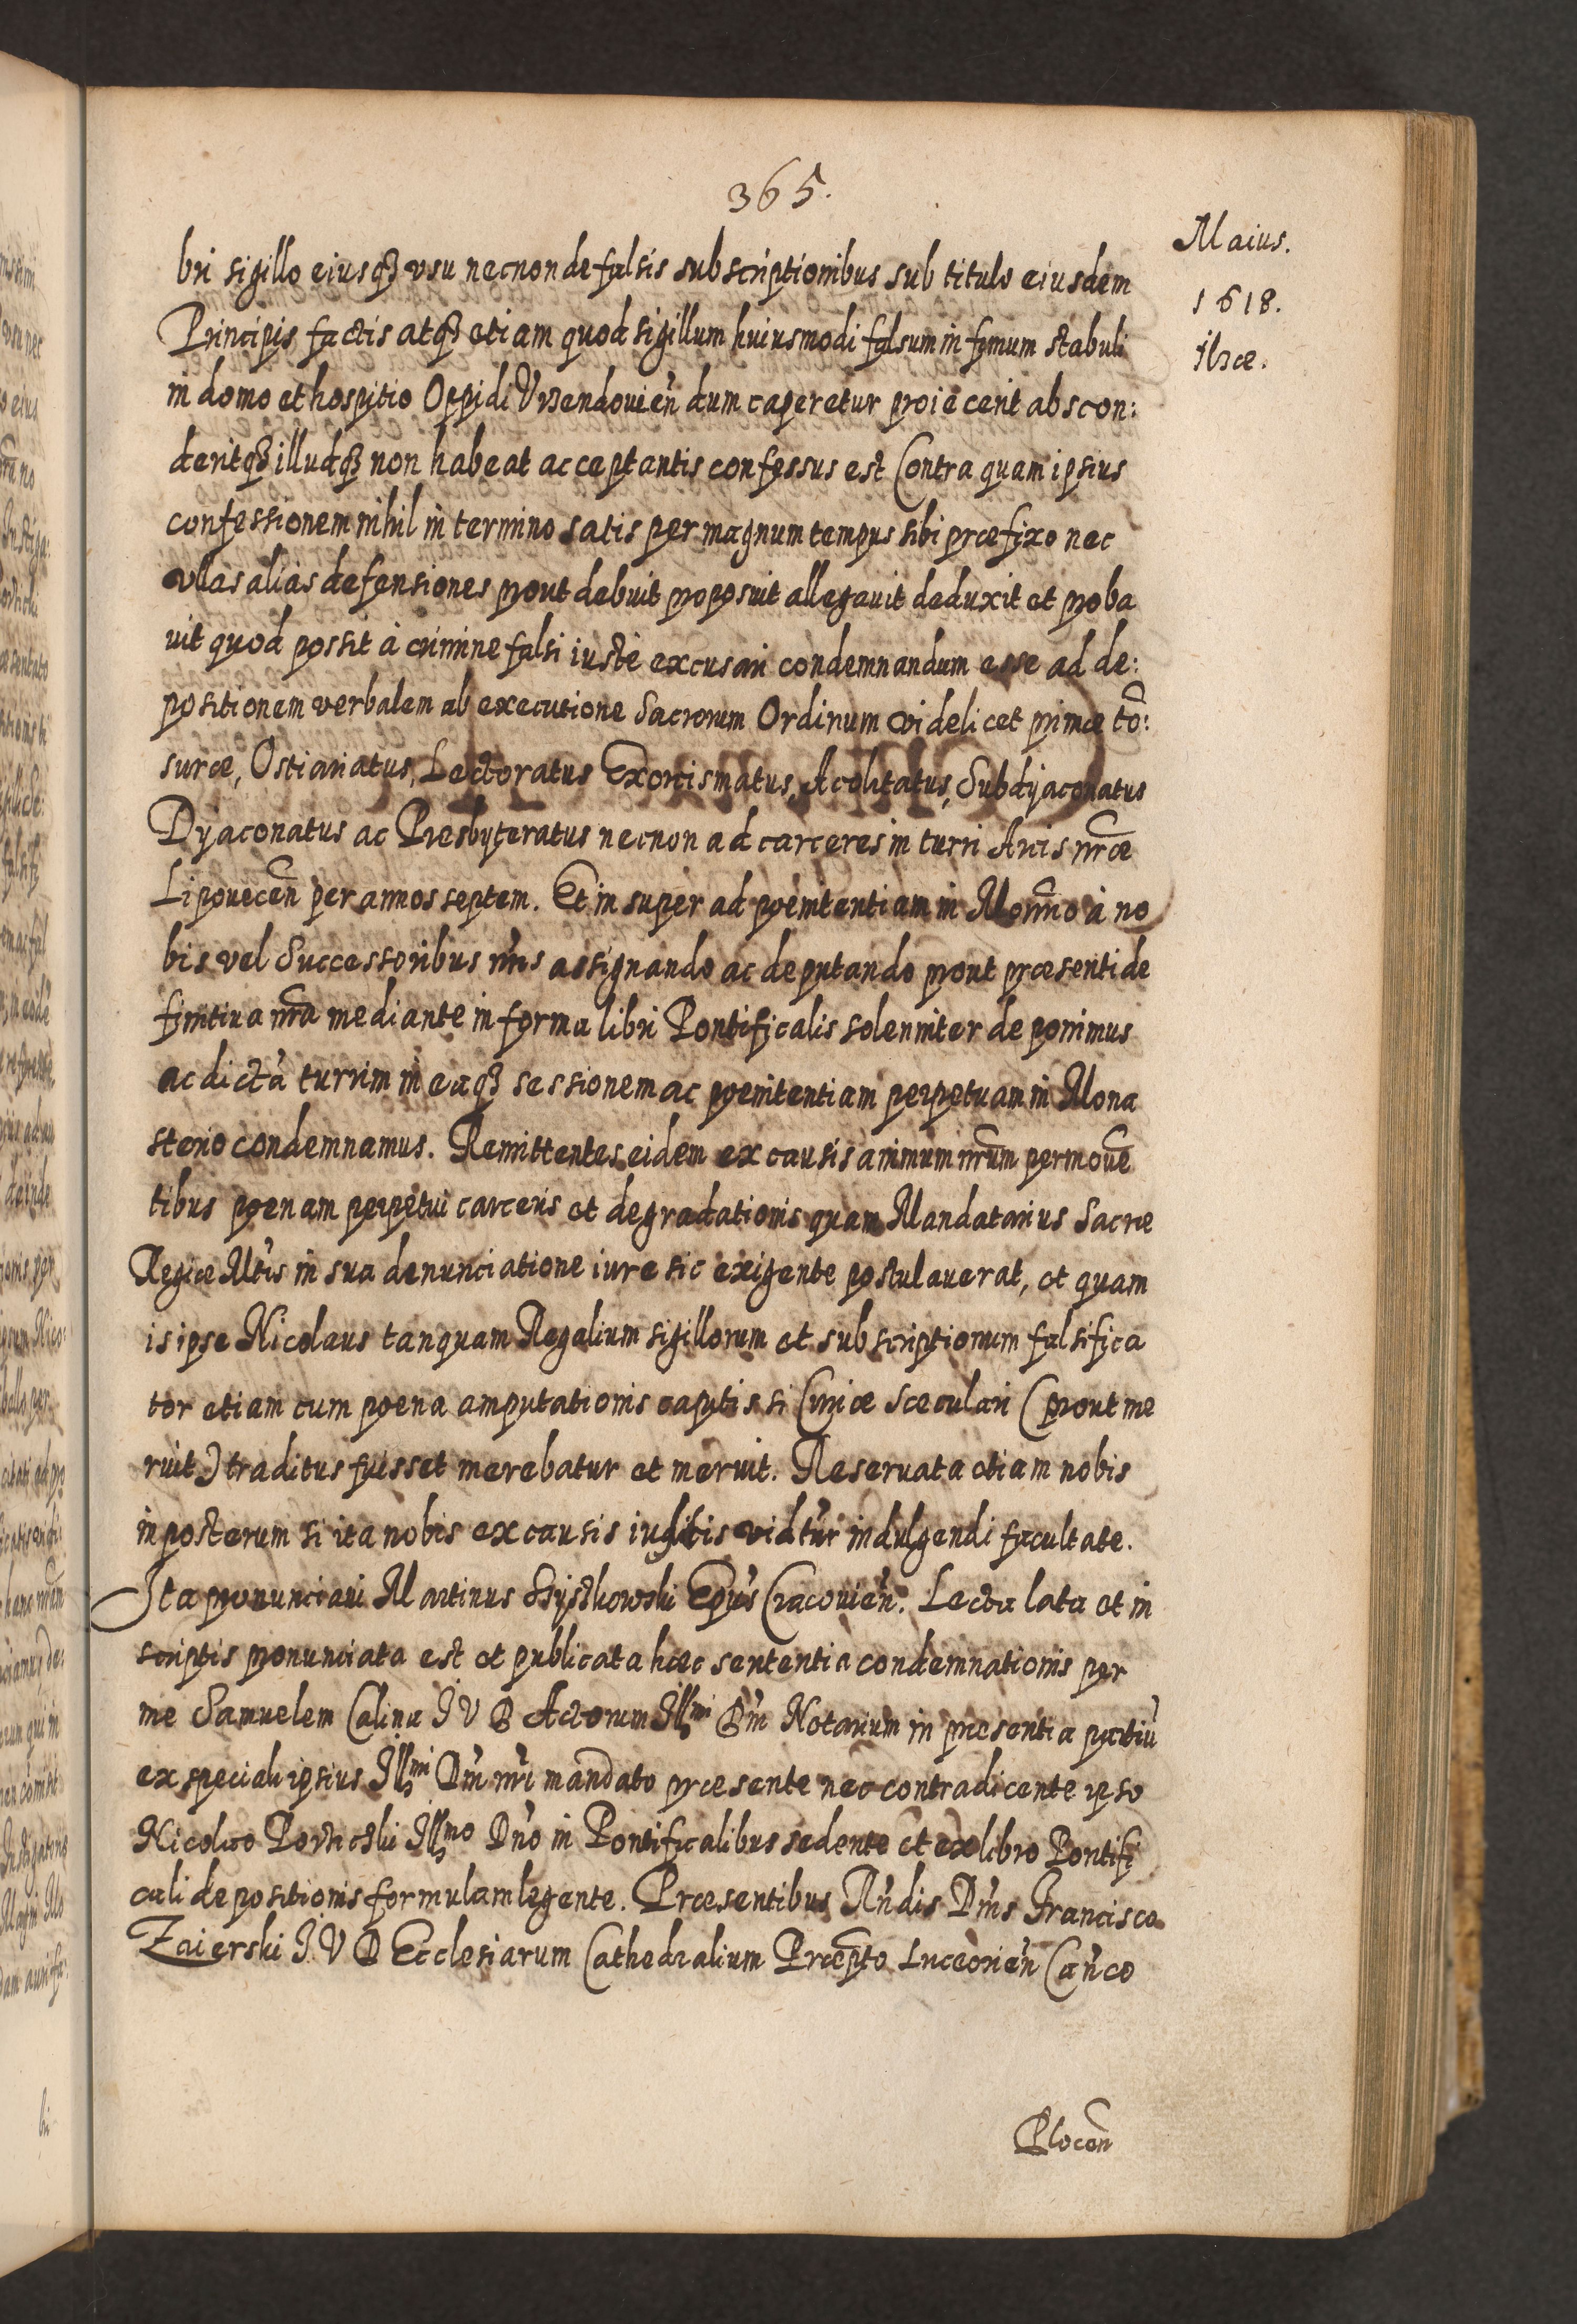 365.
Maius.
1618.
Ilzæ.
bri sigillo eiusq3 vsu necnon de falsis subscriptionibus sub titulo eiusdem
Principis factis atq3 etiam quod sigillum huiusmodi falsum in fymum stabuli
in domo et hospitio Oppidi Vrzendouień dum caperetur proiecerit abscon:
deritq3 illudq3 non habeat acceptantis confessus est Contra quam ipsius
confessionem nihil in termino satis per magnum tempus sibi præfixo nec
vllas alias defensiones prout debuit proposuit allegauit deduxit et proba
uit quod possit à crimine falsi iustè excusari condemnandum esse ad de:
positionem verbalem ab executione Sacrorum Ordinum videlicet primæ tō:
suræ, Ostiariatus, Lectoratus Exorcismatus, Acolitatus, Subdyaconatus
Dyaconatus ac Presbyteratus necnon ad carceres in turri Arcis nr̃æ
Lipouecen̄ per annos septem. Et insuper ad poenitentiam in Monr̃io à no
bis vel Successoribus nr̃is assignando ac deputando prout præsenti de
finitiua nr̃a mediante in forma libri Pontificalis solenniter deponimus
ac dictā turrim in eaq3 sessionem ac poenitentiam perpetuam in Mona
sterio condemnamus. Remittentes eidem ex causis animum nr̃um permouē
tibus poenam perpetui carceris et degradationis quam Mandatarius Sacræ
Regiæ Mt̃is in sua denunciatione iure sic exigente postulauerat, et quam
is ipse Nicolaus tanquam Regalium sigillorum et subscriptionum falsifica
tor etiam cum poena amputationis capitis si Curiæ Sæculari (prout me
ruit) traditus fuisset merebatur et meruit. Reseruata etiam nobis
in posterum si ita nobis ex causis iustis vidt̃ur indulgendi facultate.
Ita pronunciaui Martinus Szyszkowski Ep̃us Cracouień. Lecta lata et in
scriptis pronunciata est et publicata hæc sententia condemnationis per
me Samuelem Calinu I V D Actorum Ill͂mi Dn̄i Notarium in præsentia partiū
ex speciali ipsius Ill͂mi Dn̄i nr̃i mandato præsente nec contradicente ipso
Nicolao Ill͂mo Dn̄o in Pontificalibus sedente et ex libro Pontifi
cali depositionis formulam legente. Præsentibus Rn̄dis Dn̄is Francisco
Zaierski I. V D Ecclesiarum Cathedralium Præpto Luceorień Can̄co
Plocen̄